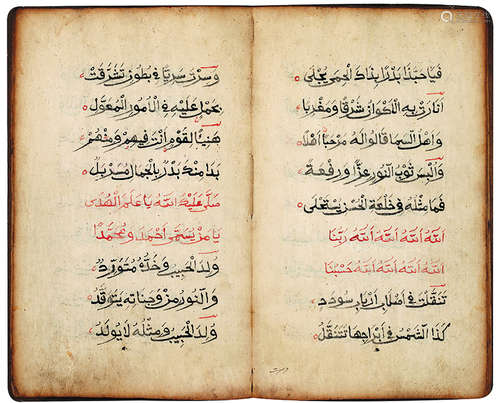 فيا حبذا بدرا بذاك الحمى يجلى
انارت به الاكوان شرقا ومغربا
واهل السما قالوا له مرحبا اهلا
والبس ثوب النور عزا ورفعة
فما مثله في خلعة الحسن يستحلى
الله الله الله الله ربنا
الله الله الله الله حسبنا
تنقلت في اصلاب ارباب سودد
كذا الشمس في ابراجها تتنقل
وسرت
وسرت سريا في بطون تشرفت
بحمل عليه في الامور المعول
هنيئا لقوم انت فيهم ومنهم
بدا منك بدر بالجمال مسربل
صلى عليك الله يا علم الهدى
يا من يسمى احمد ومحمدا
ولد الحبيب وخده متورد
والنور من وجناته يتوقد
ولد الحبيب ومثله لا يولد